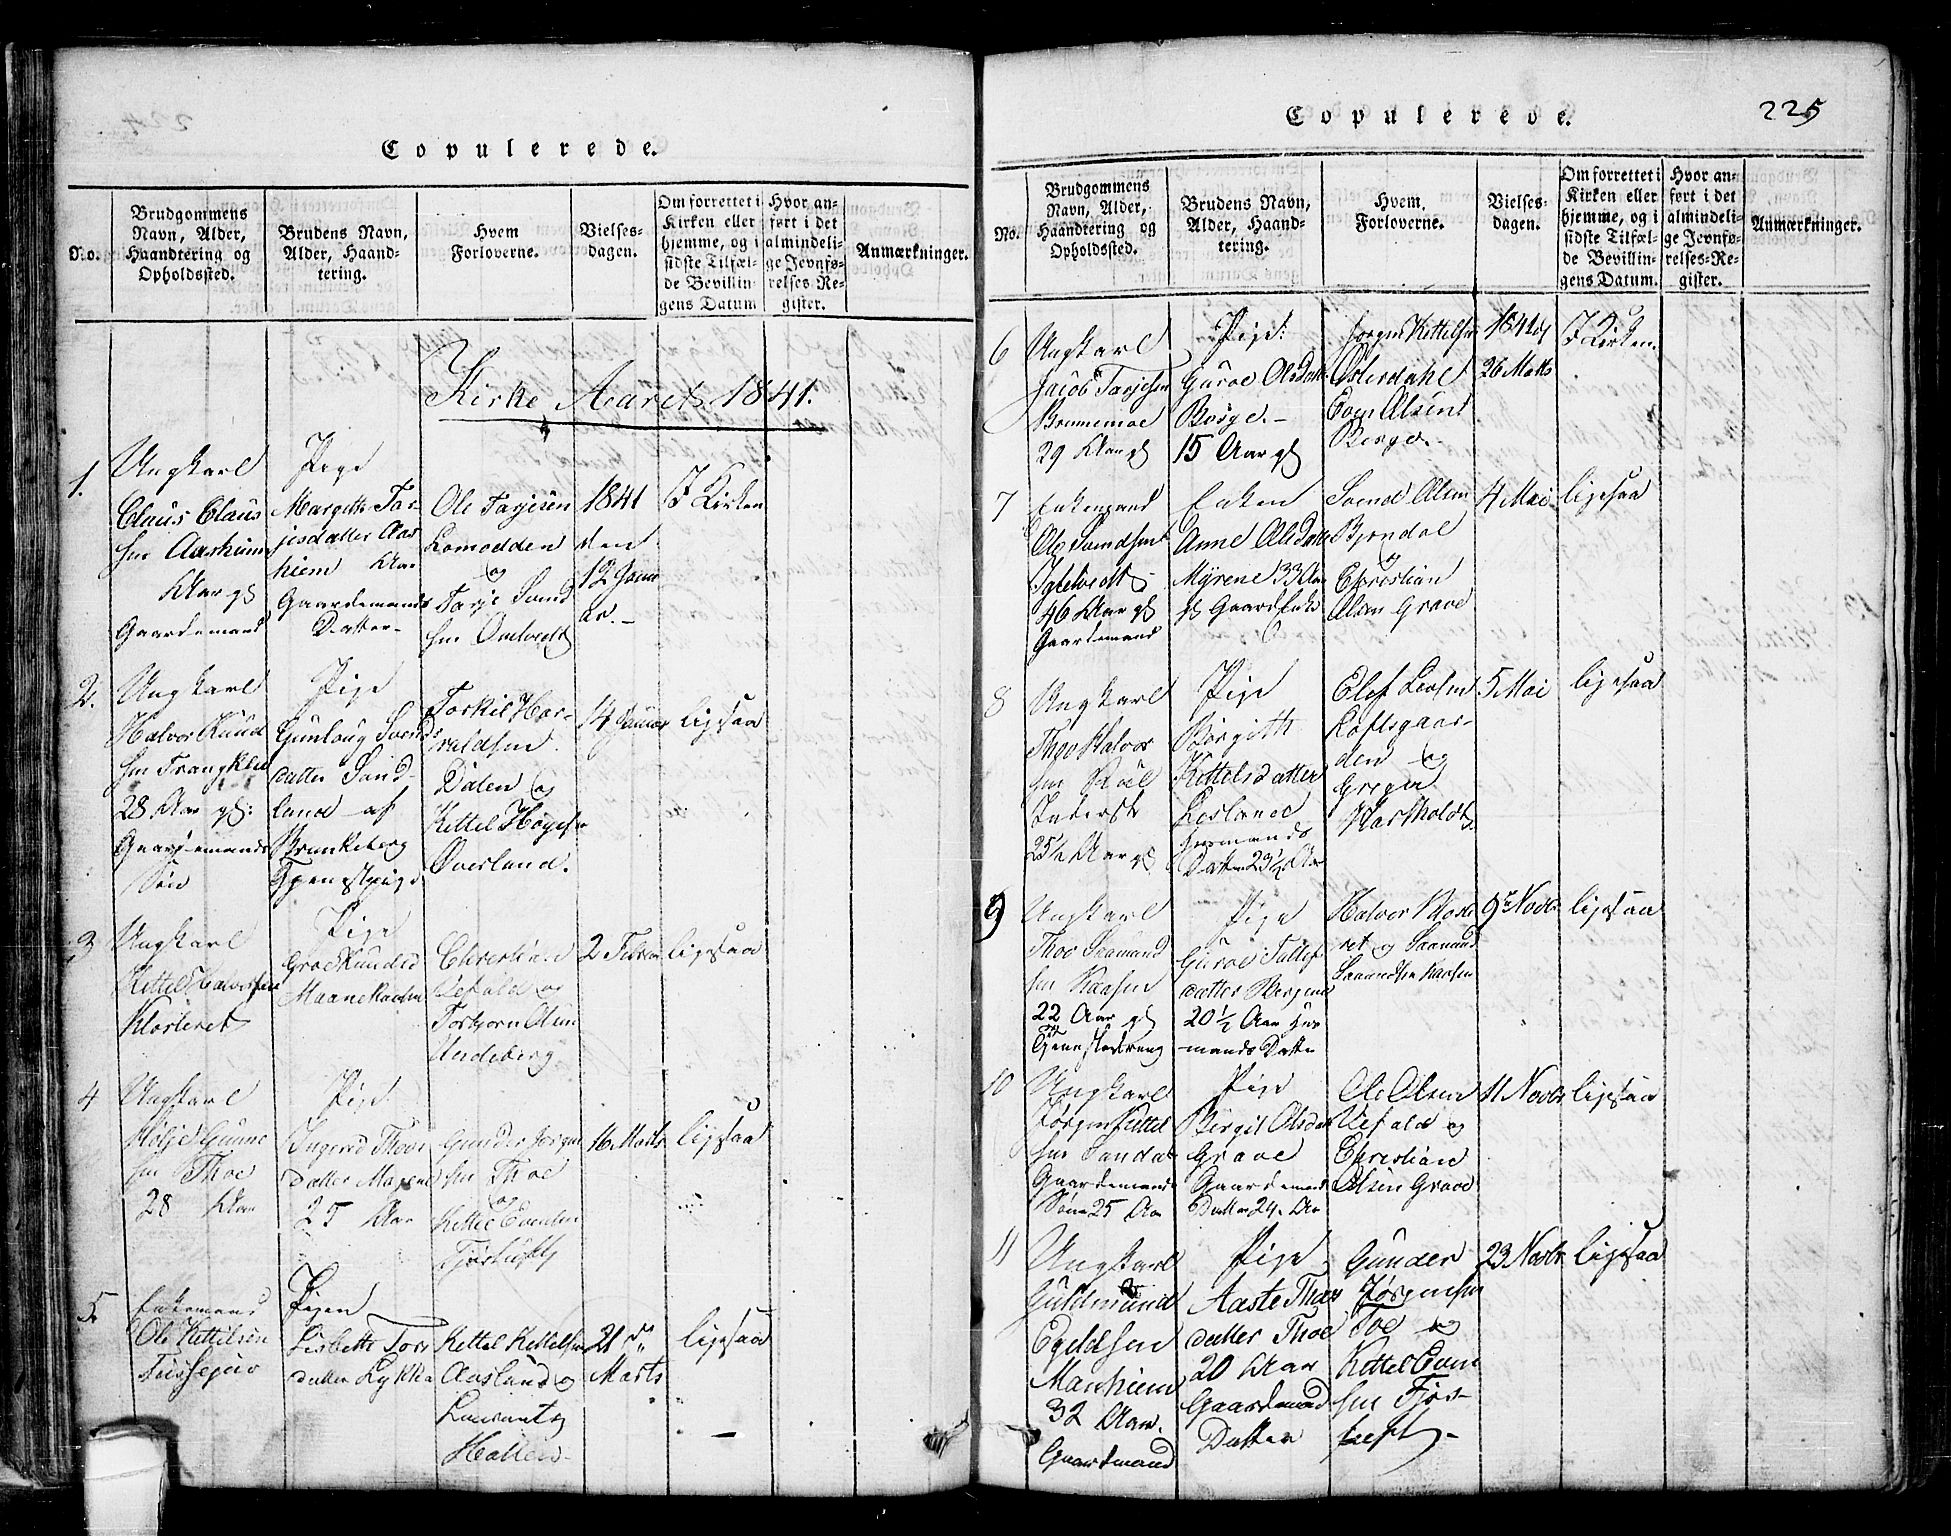 Copulerede.
No.
Brudgommens
Navn, Alder,
Haandtering og
Opholdssted.
Brudens Navn,
Alder, Haand-
tering.
Hvem
Forloverne.
Vielses-
dagen.
Om forrettet i
Kirken eller
hjemme, og i
sidste Tilfæl-
de Bevillin-
gens Datum
Hvor an-
ført i det
almindeli-
ge Jevnfø-
relses-Re-
gister.
Anmærkninger.
Kirke Aaret 1841.
1.
Ungkarl
Claus Claus
sen Aasheim
Aar gl
Gaardemand
Pige
Margith Tar-
jesdatter Aas
hiem Aar
Gaardemands
Datter-
Ole Tarjesen
Lomodden
og
Tarje Svend
sen
1841
den
12 Janu
ar.-
I Kirken
2.
Ungkarl
Halvor Knud
sen Trangklei
28 Aar gl:
Gaardemands
Søn
Pige
Gunloug Svends
datter Sand-
land af
Brunkeberg
Tjenestpige
Torkil Har-
raldsen
Dalen og
Kettel Høgese
Øverland.
14 Januar
ligesaa
3
Ungkarl
Kettel Halvorsen
Klosteret
Pige
Groe Knuds
Maane
Christian
Lefald og
Torbjørn Olsen
Undeberg
2 Februar
ligesaa
4
Ungkarl
Gunne
sen Thoe
28 Aar
Pige
Ingerid Thors
datter
25 Aar
Gunder Jørgen
sen Thoe
og
Kettel Evensen
Tjørtuft
16 Marts
ligesaa
5.
Enkemand
Ole Kettilsen
Pigen
Lisbeth Tors
datter Lykkia
Kettel Kettelsen
Aasland og
Hallen-
21 de
Marts
ligesaa
Copulerede.
225
No.
Brudgommens
Navn, Alder,
Haandtering og
Opholdssted.
Brudens Navn,
Alder, Haand-
tering.
Hvem
Forloverne.
Vielses-
dagen.
Om forrettet i
Kirken eller
hjemme, og i
sidste Tilfæl-
de Bevillin-
gens Datum.
Hvor an-
ført i det
almindeli-
ge Jevnfø-
relses-Re-
gister.
Anmærkninger.
6
Ungkarl
Jacob Tarjesen
Brunnemoe
29 Aar gl
Pige:
Guroe Olsdat
Borge.-
15 Aar gl
Jørgen Kettelsen
Østerdahl
Even Olsen
Borge.-
1841 d
26 Marts
I Kirken.
7
Enkemand
Ole Svendsen
46 Aar gl
Gaardemand
Enken
Anne Olsdatt
Myrene 33 Aar
gl Gaard Enke
Svend Olsen
Bjondal
og
Christian
Olsen Grave
4 Mai
ligesaa
8
Ungkarl
Thov Halvor
sen
Inderst
25½ Aar gl
Pige
Birgith
Kettelsdatter
Løsland
Huusmands
Datter 23½ Aar
Olef Leifsen
Loftsgaar-
den og
Greger
Kastholdt
5 Mai
ligesaa
9
Ungkarl
Thov Saamund
sen Kaasen
22 Aar gl
Tjenestedreng
Pige
Guroe Tallef
datter Bergene
20½ Aar Hus
mands Datter
Halvor Kloste
ret og Saamund
Saamundsen Kaasen
9de Novbr
ligesaa
10
Ungkarl
Jørgen Kittel
sen Sandal
Gaardemands
Søn 25 Aar
Pige
Birgit Olsdat
Grave
Gaardemands
Datter 24. Aar
Ole Olsen
Lefald og
Christian
Olsen Grave
11 Novbr
ligesaa
11
Ungkarl
Guldmund
Egeldsen
Manhiem
32 Aar.
Gaardmand
Pige
Aaste Thors
datter Thoe
20 Aar
Gaardmand
Datter
Gunder
Jørgensen
Toe og
Kettel Even
sen Tjør-
tuft.-
23 Novbr
ligesaa